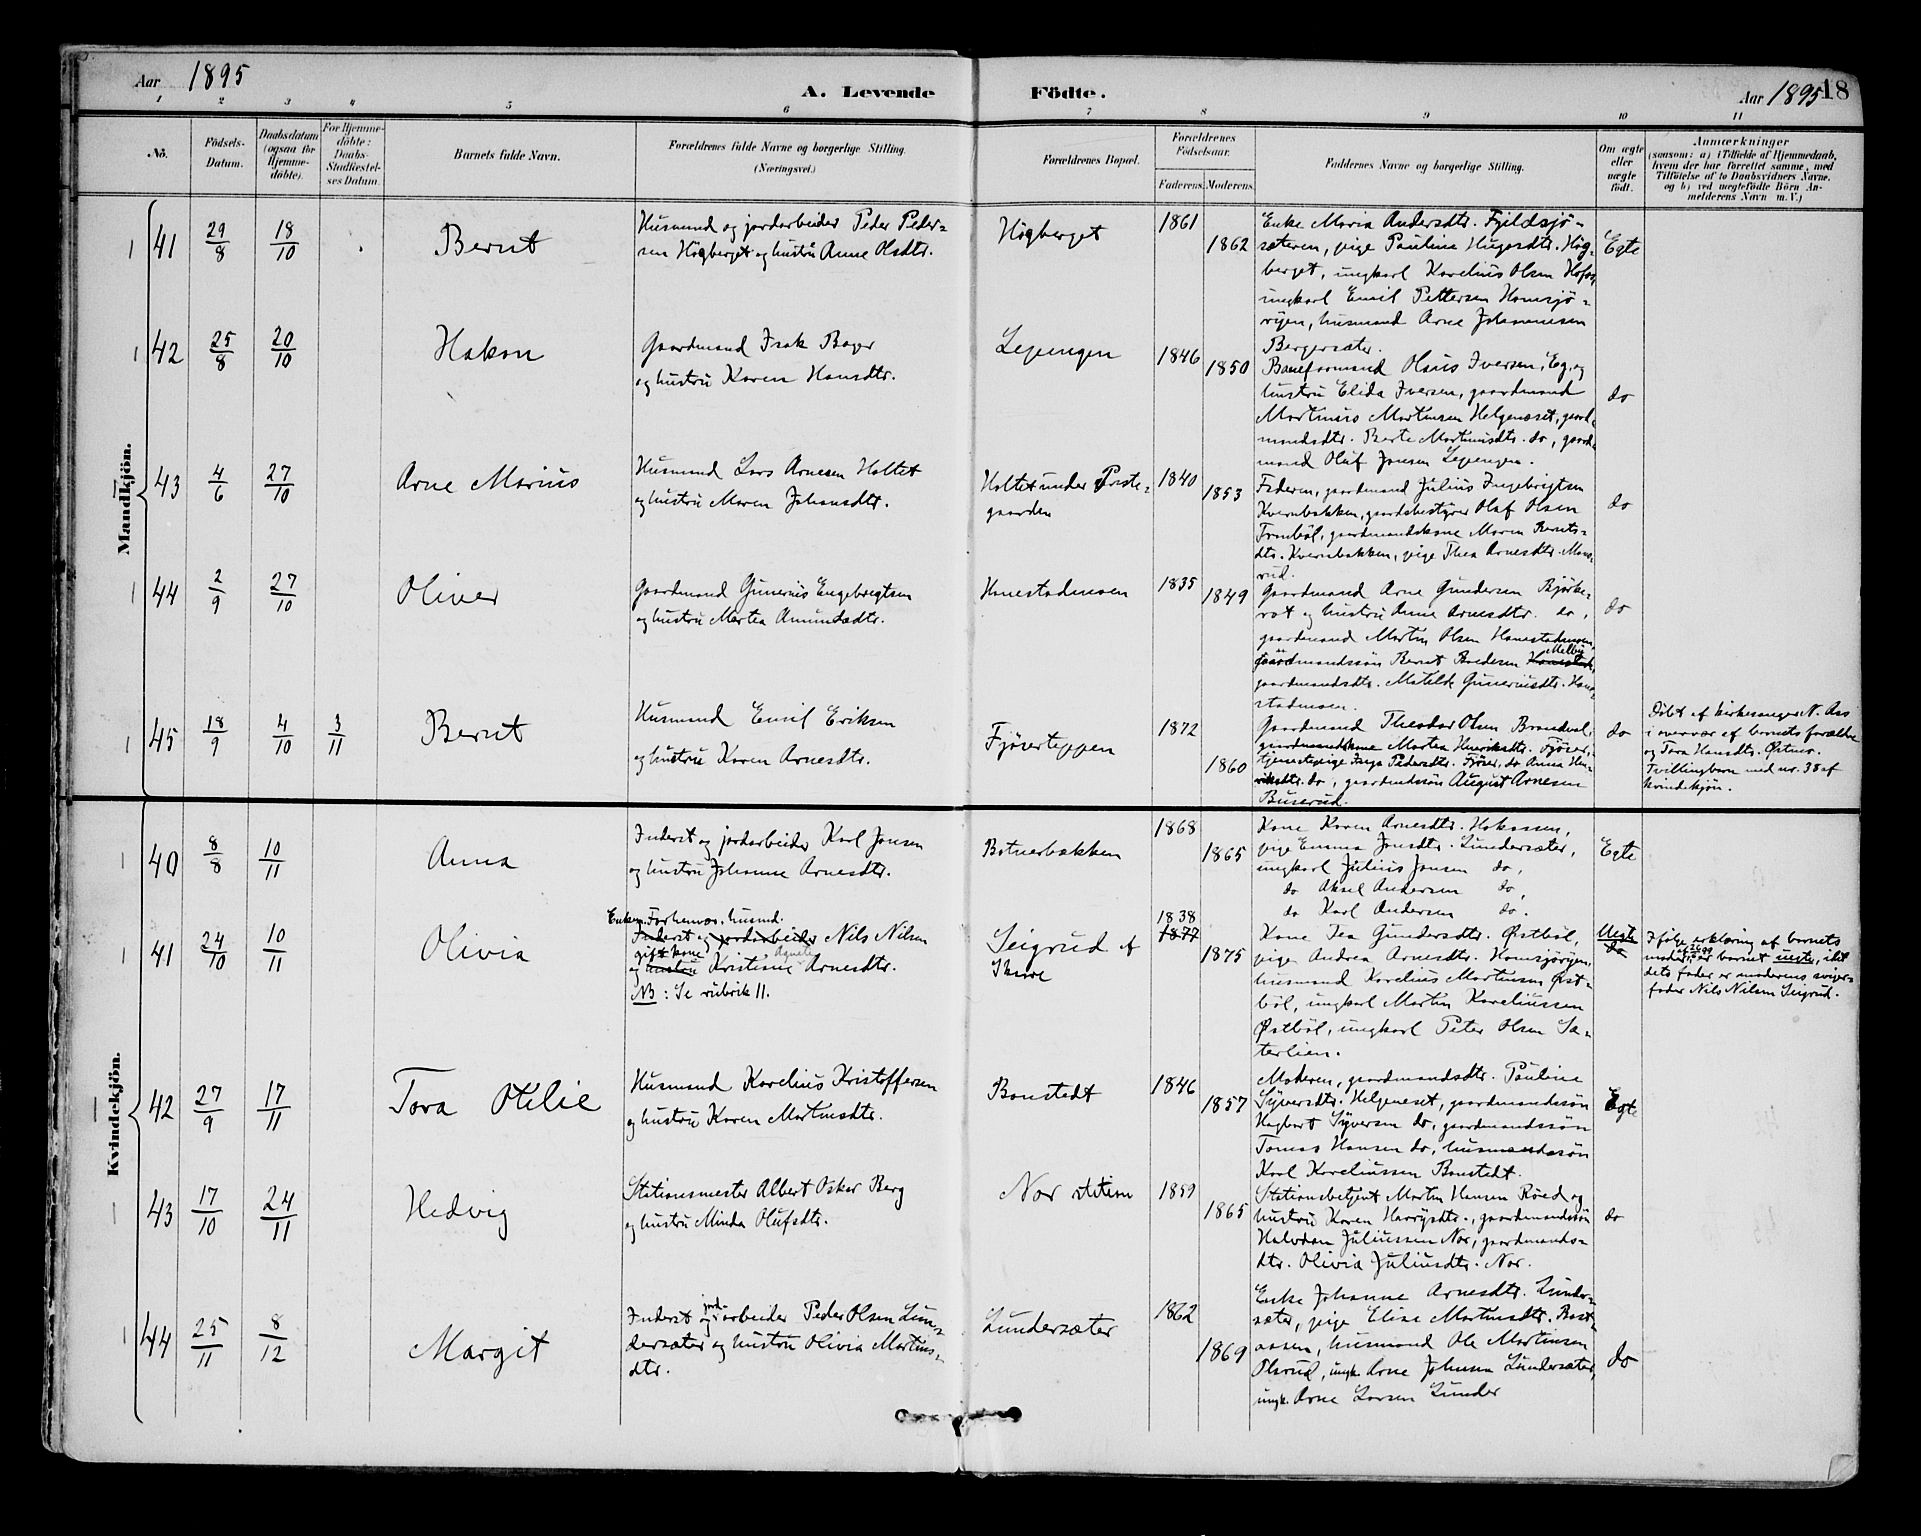 Aar 1895
A. Levende Födte.
Aar 1895
18
1 2 3 4 5 6 7 8 9 10 11
Nô.
Födsels-
Datum.
Daabsdatum
(ogsaa for
Hjemme-
döbte).
For Hjemme-
döbte:
Daabs-
Stadfæstel-
ses Datum.
Barnets fulde Navn.
Forældrenes fulde Navne og borgerlige Stilling.
(Næringsvei.)
Forældrenes Bopæl.
Forældrenes
Födselsaar.
Faderens. Moderens.
Faddernes Navne og borgerlige Stilling.
Om ægte
eller
uægte
födt.
Anmærkninger
(saasom: a) i Tilfælde af Hjemmedaab,
hvem der har forrettet samme, med
Tilföielse af to Daabsvidners Navne,
og b) ved uægtefödte Börn An-
melderens Navn m. V.)
Mandkjön.
41 29/8 18/10
Bernt
Husmand og jordarbeider Peder Peder-
sen Högberget og hustru Anne Olsdtr.
Högberget
1861
1862
Enke Maria Andersdtr. Fjeldsjö-
sæteren, pige Pauline Hugosdtr. Hög-
berget, ungkarl Karelius Olsen
ungkarl Emil Pettersen Hamsjö-
vijen, husmand Arne Johannesen
Bergersæter.
Egte
42 25/8 20/10
Hakon
Gaardmand Isak Boger
og hustru Karen Hansdtr.
Lejengen
1846
1850
Baneformand Olaus Iversen, Eg, og
hustru Elida Iversen, gaardmand
Martinus Martinsen Helgenæset, gaard-
mandsdtr. Berte Martinusdtr. do, gaard-
mand Oluf Jensen Lejengen.
do
43 4/6 27/10
Arne Marius
Husmand Lars Arnesen Holtet
og hustru Maren Johansdtr.
Holtet under Præste-
gaarden
1840
1853
Faderen, gaardmand Julius Ingebrigtsen
Kvernbakken, gaardsbestyrer Olaf Olsen
Tromböl, gaardmandskone Maren Bernts-
dtr. Kvernbakken, pige Thea Arnesdtr. Mons-
rud.
do
44 2/9 27/10
Oliver
Gaardmand Gunerius Engebrigtsen
og hustru Martea Amundsdtr.
Hanestadmoen
1835
1849
Gaardmand Arne Gundersen Björke-
rot og hustru Anne Arnesdtr. do,
gaardmand Martin Olsen Hanestadmoen,
gaardmandssön Bernt Bredesen Melby
gaardmandsdtr. Matilde Guneriusdtr. Hane-
stadmoen.
do
45 18/9 4/10 3/11
Bernt
Husmand Emil Eriksen
og hustru Karen Arnesdtr.
Fjösertæppen
1872
1860
Gaardmand Theodor Olsen Brandval,
gaardmandskone Martea Henriksdtr. Fjöser,
tjenestepige Inga Pedersdtr. Fjöser, do Anna Hen-
riksdtr. do, gaardmandssön August Arnesen
Buserud.
do
Döbt af kirkesanger N. Aas
i overvær af barnets forældre
og Tora Hansdtr. Östmo.
Tvillingbarn med nr. 38 af
kvindekjön.
Kvindekjön.
40 8/8 10/11
Anna
Inderst og jordarbeider Karl Jensen
og hustru Johanne Arnesdtr.
Botnerbækken
1868
1865
Kone Karen Arnesdtr. Hokaasen,
pige Emma Jensdtr. Lundersæter,
ungkarl Julius Jensen do,
do Aksel Andersen do,
do Karl Andersen do.
Egte
41 24/10 10/11
Olivia
Enkem. Forhenv. husmd.
Inderst og jordarbeider Nils Nilsen
gift kone Agnete
og hustru Kristine Arnesdtr.
NB: Se rubrik 11.
Seigrud af
Skare
1838
1877
1875
Kone Tea Gundersdtr. Östböl,
pige Andrea Arnesdtr. Hamsjövijen,
husmand Karelius Martinsen Öst-
böl, ungkarl Martin Kareliussen
Östböl, ungkarl Peter Olsen Sæ-
terlien.
Uegte
do
Ifölge erklæring af barnets
moder, er barnet uegte, idet
dets fader er moderens sviger-
fader Nils Nilsen Seigrud.
42 27/9 17/11
Tora Otilie
Husmand Karelius Kristoffersen
og hustru Karen Martinsdtr.
Bonstedt
1846
1857
Moderen, gaardmandsdtr. Pauline
Syversdtr. Helgeneset, gaardmandssön
Hagbart Syversen do, gaardmandssön
Tomas Hansen do, husmandssön
Karl Kareliussen Bonstedt.
Egte
43 17/10 24/11
Hedvig
Stationsmester Albert Oskar Berg
og hustru Minda Olufsdtr.
Nor station
1859
1865
Stationsbetjent Martin Hansen Röed og
hustru Karen Harrysdtr., gaardmandssön
Halvdan Juliussen Nor, gaardmands-
dtr. Olivia Juliusdtr. Nor.
do
44 25/11 8/12
Margit
Inderst og jord-arbeider Peder Olsen Lun-
dersæter og hustru Olivia Martins-
dtr.
Lundersæter
1862
1869
Enke Johanne Arnesdtr. Lunder-
sæter, pige Elise Martinusdtr. Bast-
aasen, husmand Ole Martinsen
Olsrud, ungk. Arne Johnsen Lundersæter,
ungk. Arne Larsen Lunder
do